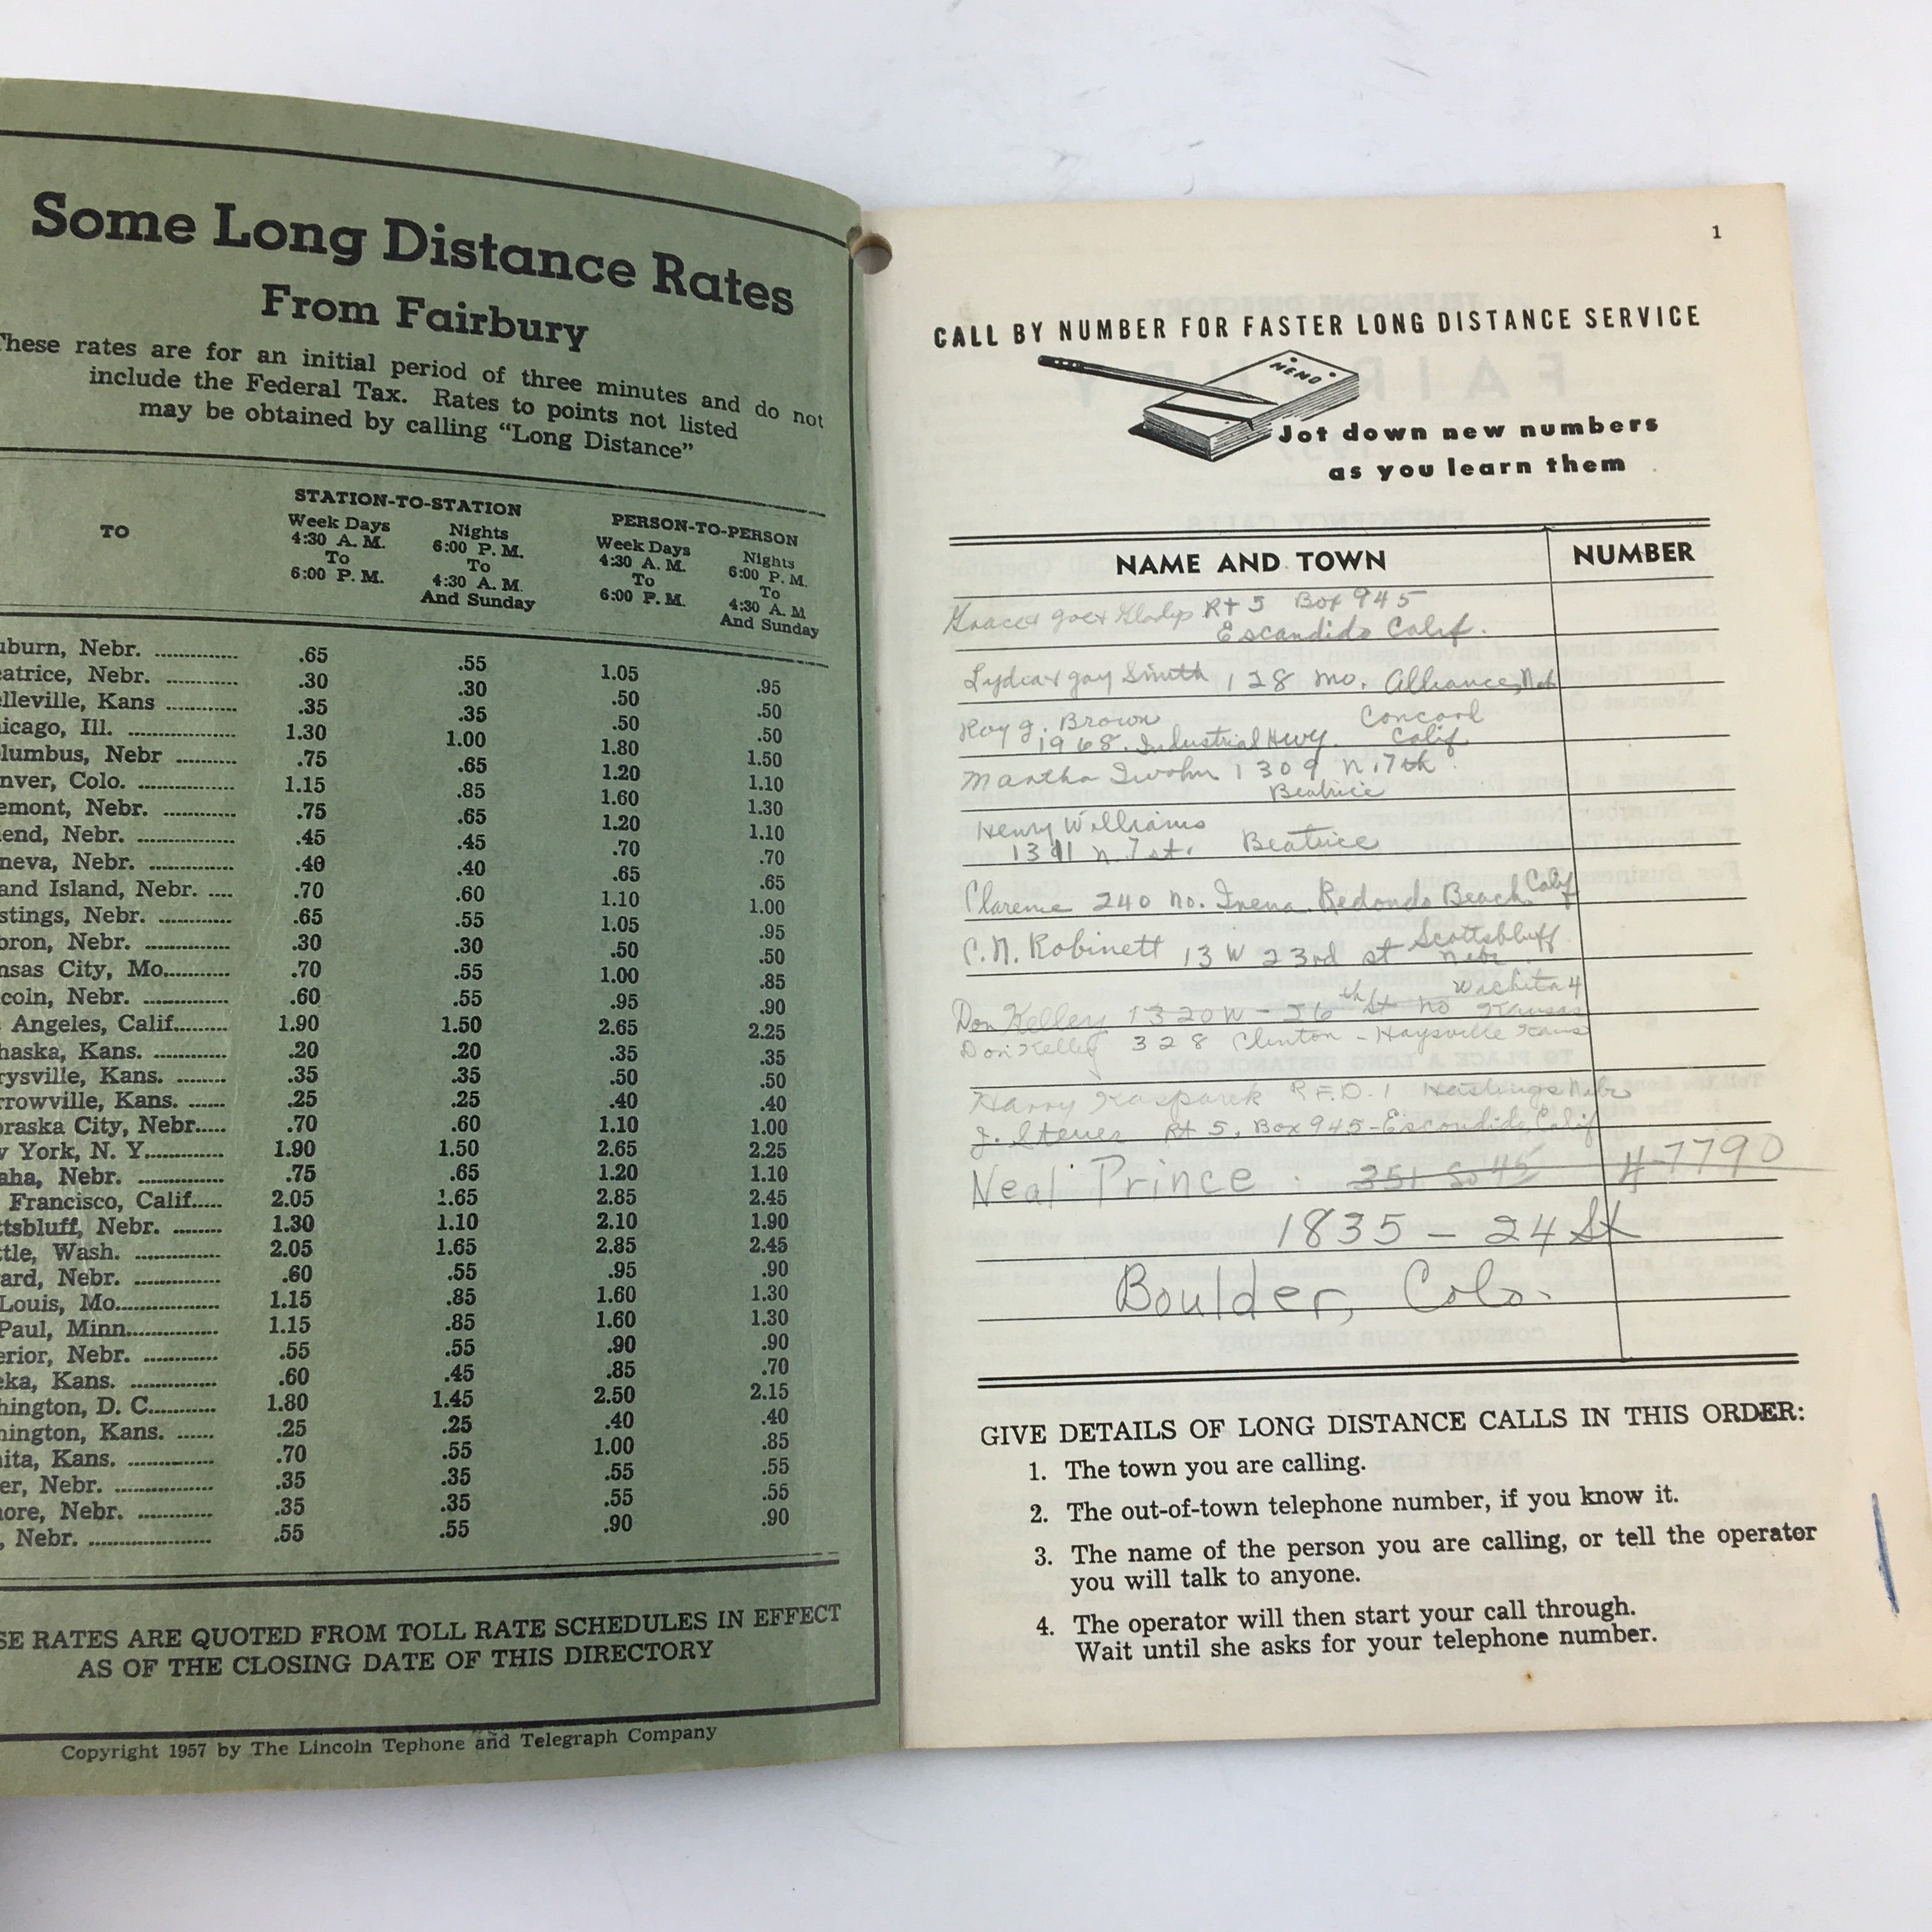 Some Long Distance Rates
From Fairbury
These rates are for an initial period of three minutes and do not
include the Federal Tax. Rates to points not listed
may be obtained by calling “Long Distance”
TO
STATION-TO-STATION
Week Days
4:30 A. M.
To
6:00 P. M.
Nights
6:00 P. M.
To
4:30 A. M.
And Sunday
PERSON-TO-PERSON
Week Days
4:30 A. M.
To
6:00 P. M.
Nights
6:00 P. M.
To
4:30 A. M
And Sunday
uburn, Nebr. .65 .55 1.05 .95
eatrice, Nebr. .30 .30 .50 .50
elleville, Kans .35 .35 .50 .50
icago, Ill. 1.30 1.00 1.80 1.50
lumbus, Nebr .75 .65 1.20 1.10
nver, Colo. 1.15 .85 1.60 1.30
emont, Nebr. .75 .65 1.20 1.10
iend, Nebr. .45 .45 .70 .70
neva, Nebr. .40 .40 .65 .65
and Island, Nebr. .70 .60 1.10 1.00
stings, Nebr. .65 .55 1.05 .95
bron, Nebr. .30 .30 .50 .50
nsas City, Mo. .70 .55 1.00 .85
coln, Nebr. .60 .55 .95 .90
Angeles, Calif. 1.90 1.50 2.65 2.25
haska, Kans. .20 .20 .35 .35
rysville, Kans. .35 .35 .50 .50
rrowville, Kans. .25 .25 .40 .40
braska City, Nebr. .70 .60 1.10 1.00
w York, N. Y. 1.90 1.50 2.65 2.25
aha, Nebr. .75 .65 1.20 1.10
Francisco, Calif. 2.05 1.65 2.85 2.45
ttsbluff, Nebr. 1.30 1.10 2.10 1.90
ttle, Wash. 2.05 1.65 2.85 2.45
ard, Nebr. .60 .55 .95 .90
Louis, Mo. 1.15 .85 1.60 1.30
Paul, Minn. 1.15 .85 1.60 1.30
erior, Nebr. .55 .55 .90 .90
eka, Kans. .60 .45 .85 .70
hington, D. C. 1.80 1.45 2.50 2.15
hington, Kans. .25 .25 .40 .40
hita, Kans. .70 .55 1.00 .85
er, Nebr. .35 .35 .55 .55
ore, Nebr. .35 .35 .55 .55
, Nebr. .55 .55 .90 .90
SE RATES ARE QUOTED FROM TOLL RATE SCHEDULES IN EFFECT
AS OF THE CLOSING DATE OF THIS DIRECTORY
Copyright 1957 by The Lincoln Tephone and Telegraph Company
1
CALL BY NUMBER FOR FASTER LONG DISTANCE SERVICE
MEMO
Jot down new numbers
as you learn them
NAME AND TOWN NUMBER
Rt 5 Box 945
Escandido Calif.
Smith 128 Mo. Alliance, Neb
Roy J. Brown Concord
1968 Industrial Hwy. Calif.
Martha 1309 N. 7th
Beatrice
Henry Williams
1311 N. 7 st. Beatrice
Clarence 240 No. Irena Redondo Beach Calif
C. N. Robinett 13 W 23rd st Scottsbluff
Nebr.
Don Kelley 1320 W - 26th St No Wichita 4
Kansas
Don Kelley 328 Clinton - Haysville Kans
Harry Kasparek R.F.D. 1 Hastings Nebr
J. Rt 5, Box 945 - Escondido Calif
Neal Prince 351 So 45 H-7790
1835 - 24 St
Boulder, Colo.
GIVE DETAILS OF LONG DISTANCE CALLS IN THIS ORDER:
1. The town you are calling.
2. The out-of-town telephone number, if you know it.
3. The name of the person you are calling, or tell the operator
you will talk to anyone.
4. The operator will then start your call through.
Wait until she asks for your telephone number.